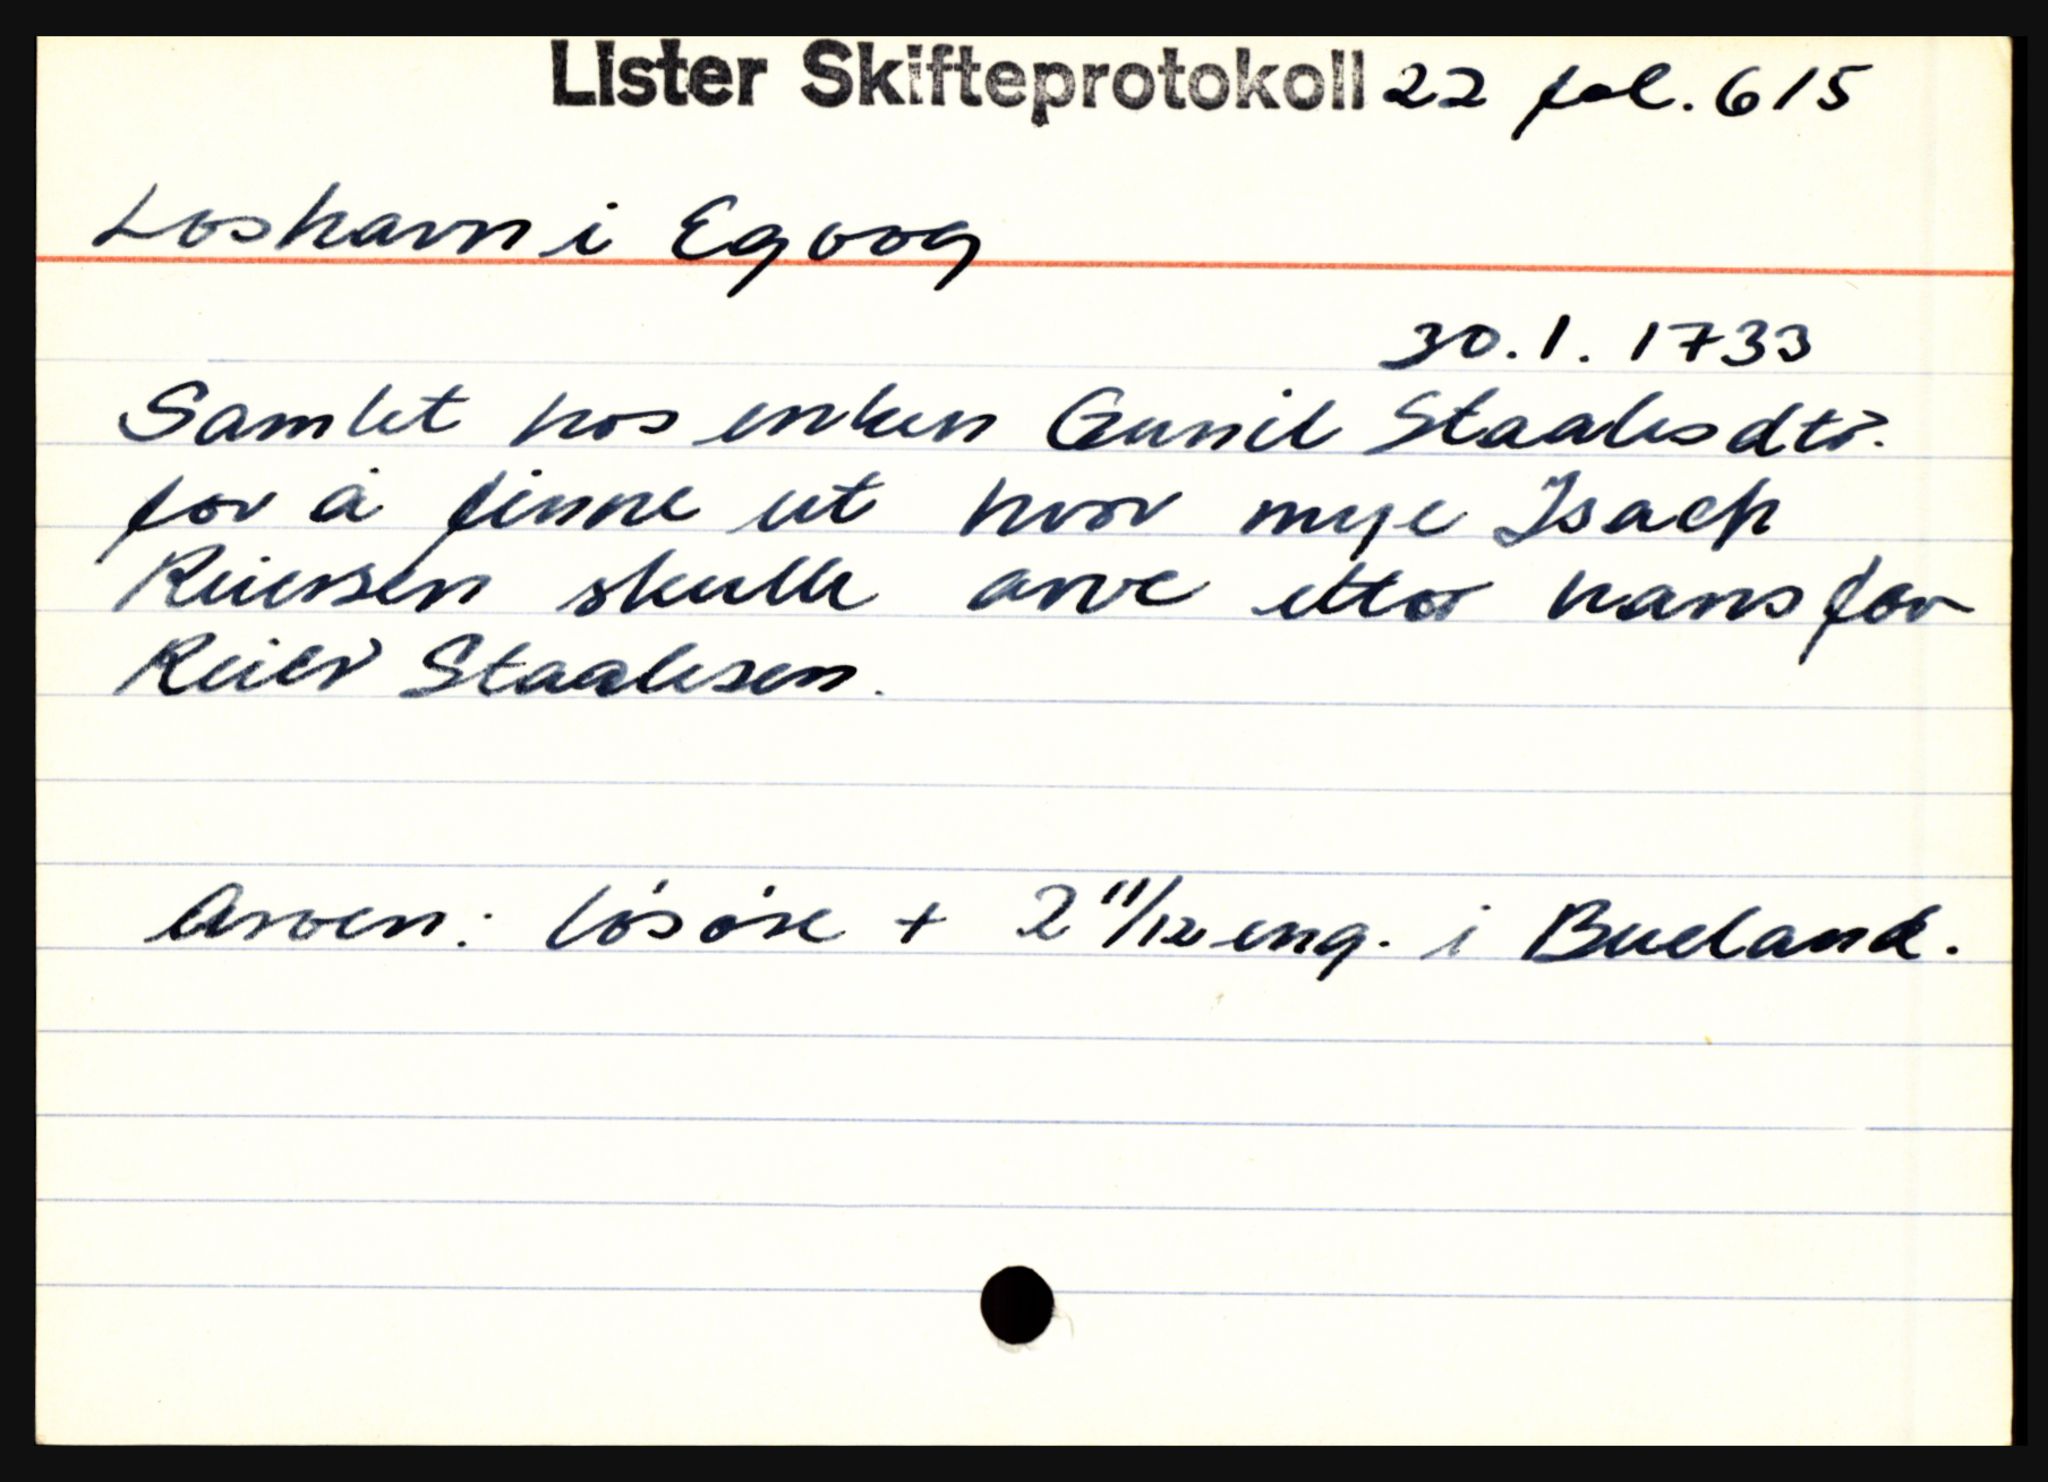 Lister Skifteprotokoll 22 fol. 615
Loshavn i Egvog
30.1.1733
Samlet hos enken Gunil Staalesdtr.
for å finne ut hvor mye Isach
Reiersen skulle arve etter hans far
Reier Staalesen.
Arven: løsøre + 2 11/12 eng. i Bueland.